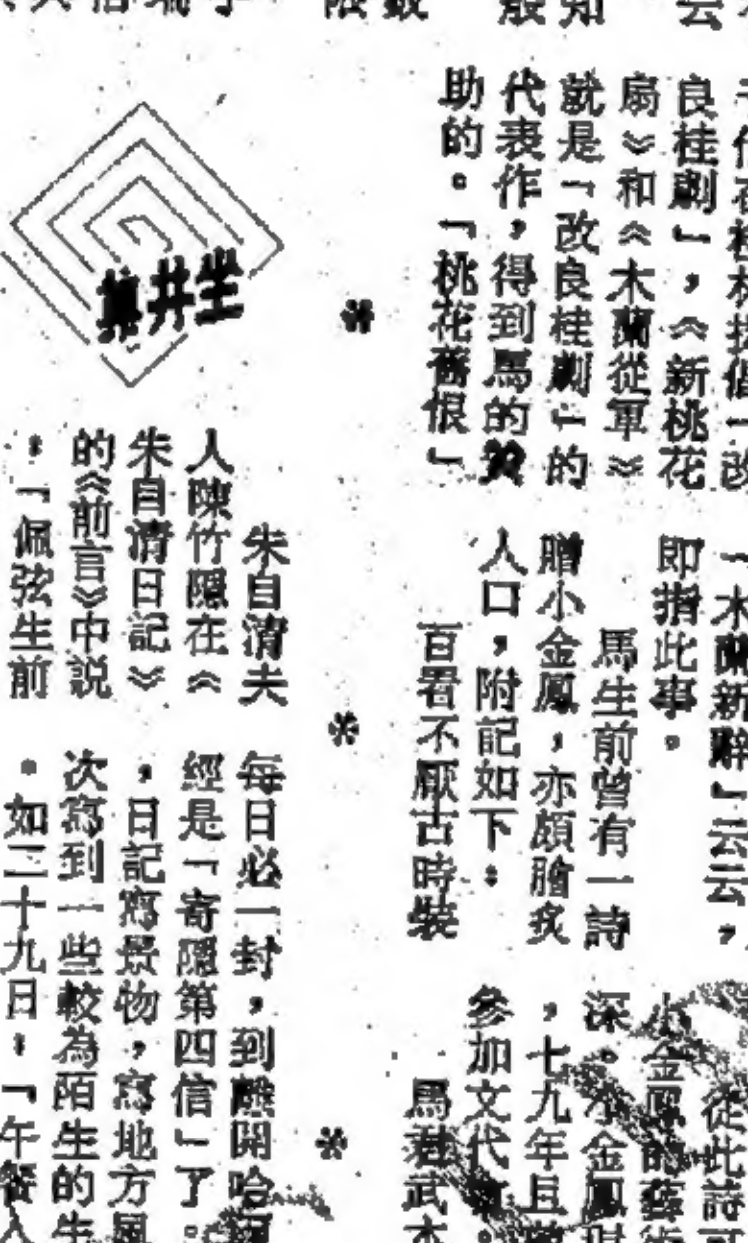 良桂劇」，《新桃花
扇》和《木蘭從軍》
就是「改良桂劇」的
代表作，得到馬的贊
助的。「桃花舊恨」
「木蘭新辭」云云，
即指此事。
馬生前曾有一詩
贈小金鳳，亦頗膾炙
人口，附記如下：
百看不厭古時裝
從此詩可
小金鳳的藝術
深。小金鳳
，七九年且
參加文代
馬君武本
坐井集
朱自清夫
人陳竹隱在《
朱自清日記》
的《前言》中説
：「佩弦生前
每日必一封，到離開哈爾
經是「寄隱第四信」了。
，日記寫景物，寫地方風
次寫到一些較為陌生的生
。如二十九日：「午餐入